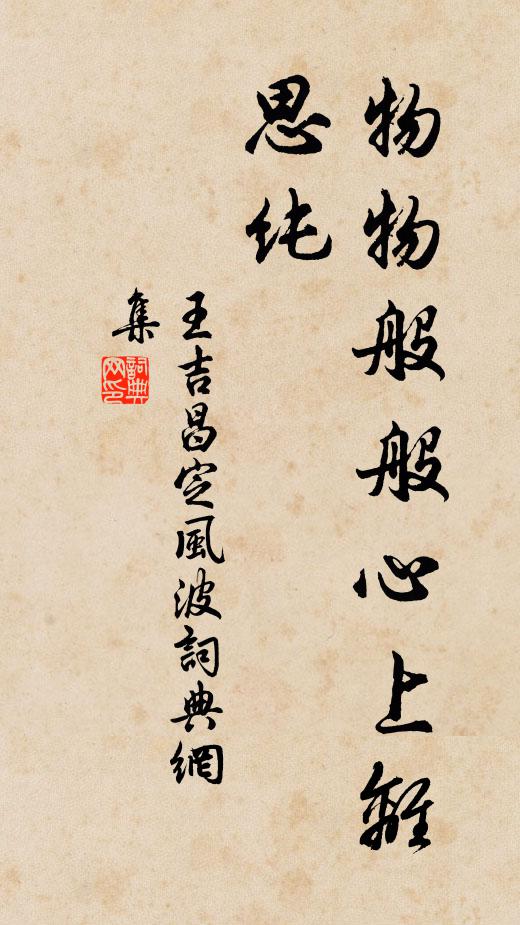 物物般般心上離
思纯
王吉昌定風波詞典網
集
詞典网印